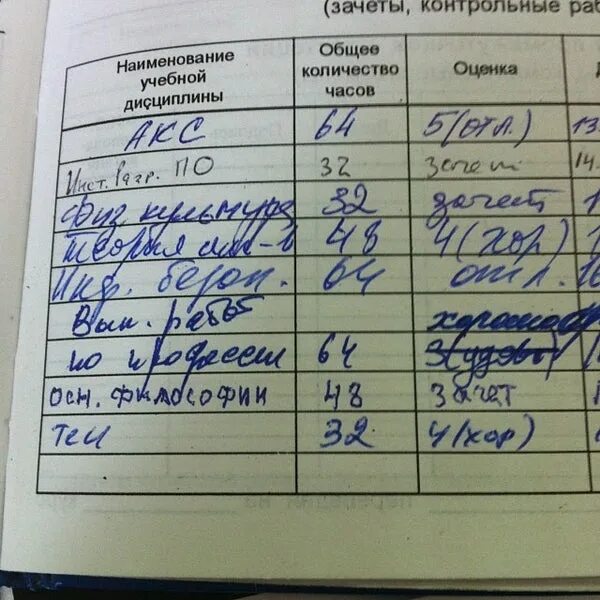 (зачеты, контрольные раб
Наименование учебной дисциплины Общее количество часов Оценка
АКС 64 5(отл.) 13.
Инст. Разр. ПО 32 зачет 14.
Физ культура 32 зачет 1
теория 48 4(хор) 1
Инф. безоп. 64 отл. 16
Вып. работ хорошо
по профессии 64 3(удов)
осн. философии 48 зачет
32 4(хор)